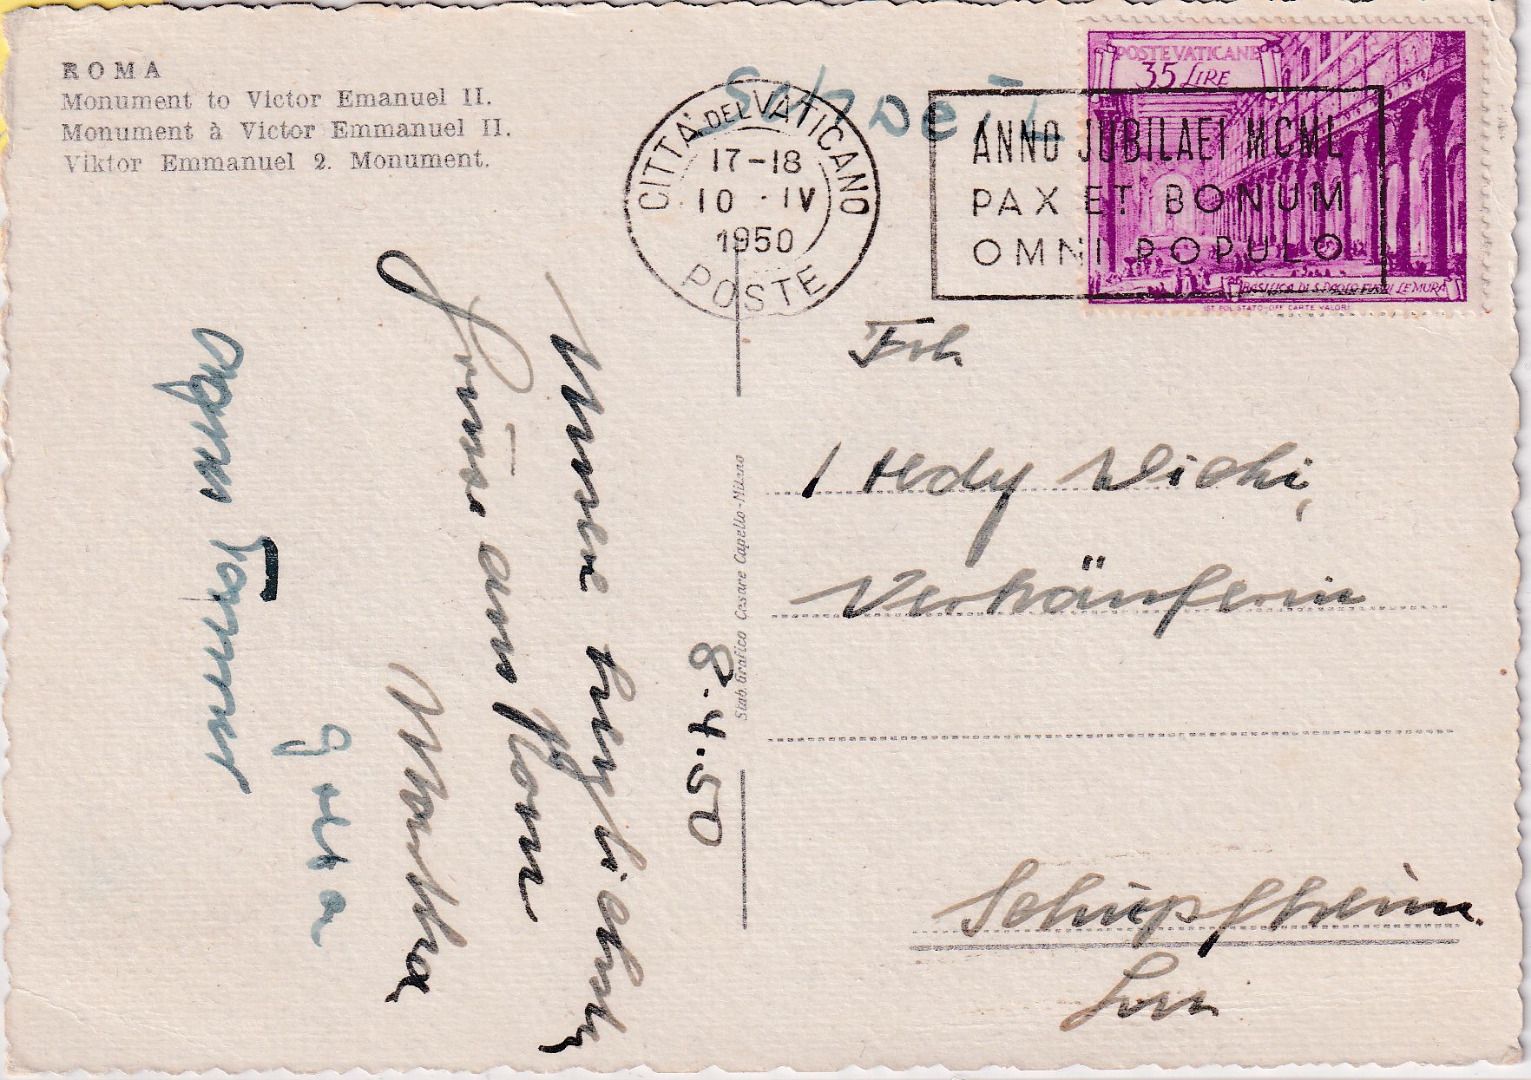 ROMA
Monument to Victor Emanuel II.
Monument à Victor Emmanuel II.
Viktor Emmanuel 2. Monument.
Schweiz
CITTA' DEL VATICANO
17-18
10 ·IV
1950
POSTE
ANNO JUBILAEI MCML
PAX ET BONUM
OMNI POPULO
POSTE VATICANE
35 LIRE
BASILICA DI S. PAOLO FUORI LE MURA
IST. POL. STATO-OFF. CARTE VALORI
8.4.50
herzlichsten
Grüsse aus Rom
Martha
Stab. Grafico Cesare Capello - Milano
Frl.
Hedy Wicki,
Verkäuferin
Schüpfheim.
Luz.